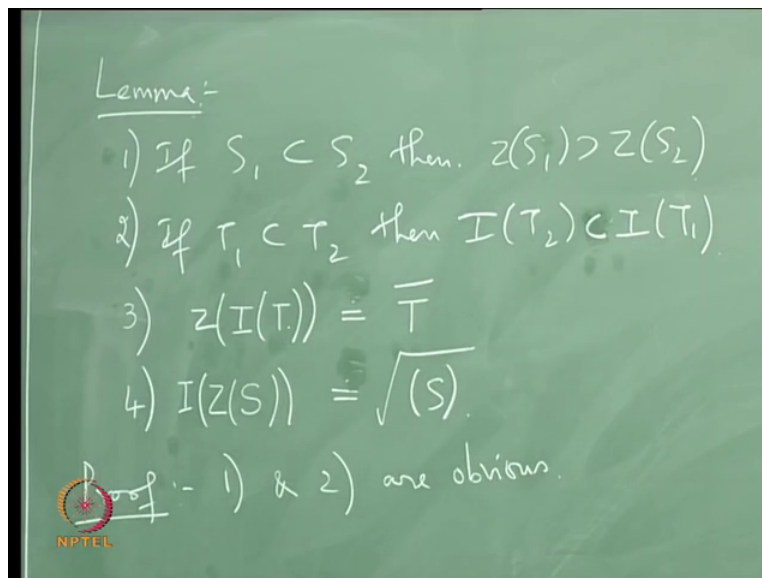 Lemma:-
1) If S₁ ⊂ S₂ then. Z(S₁) ⊃ Z(S₂)
2) If T₁ ⊂ T₂ then I(T₂) ⊂ I(T₁)
3) Z(I(T)) = T̅
4) I(Z(S)) = √(S).
Proof:- 1) & 2) are obvious.
NPTEL